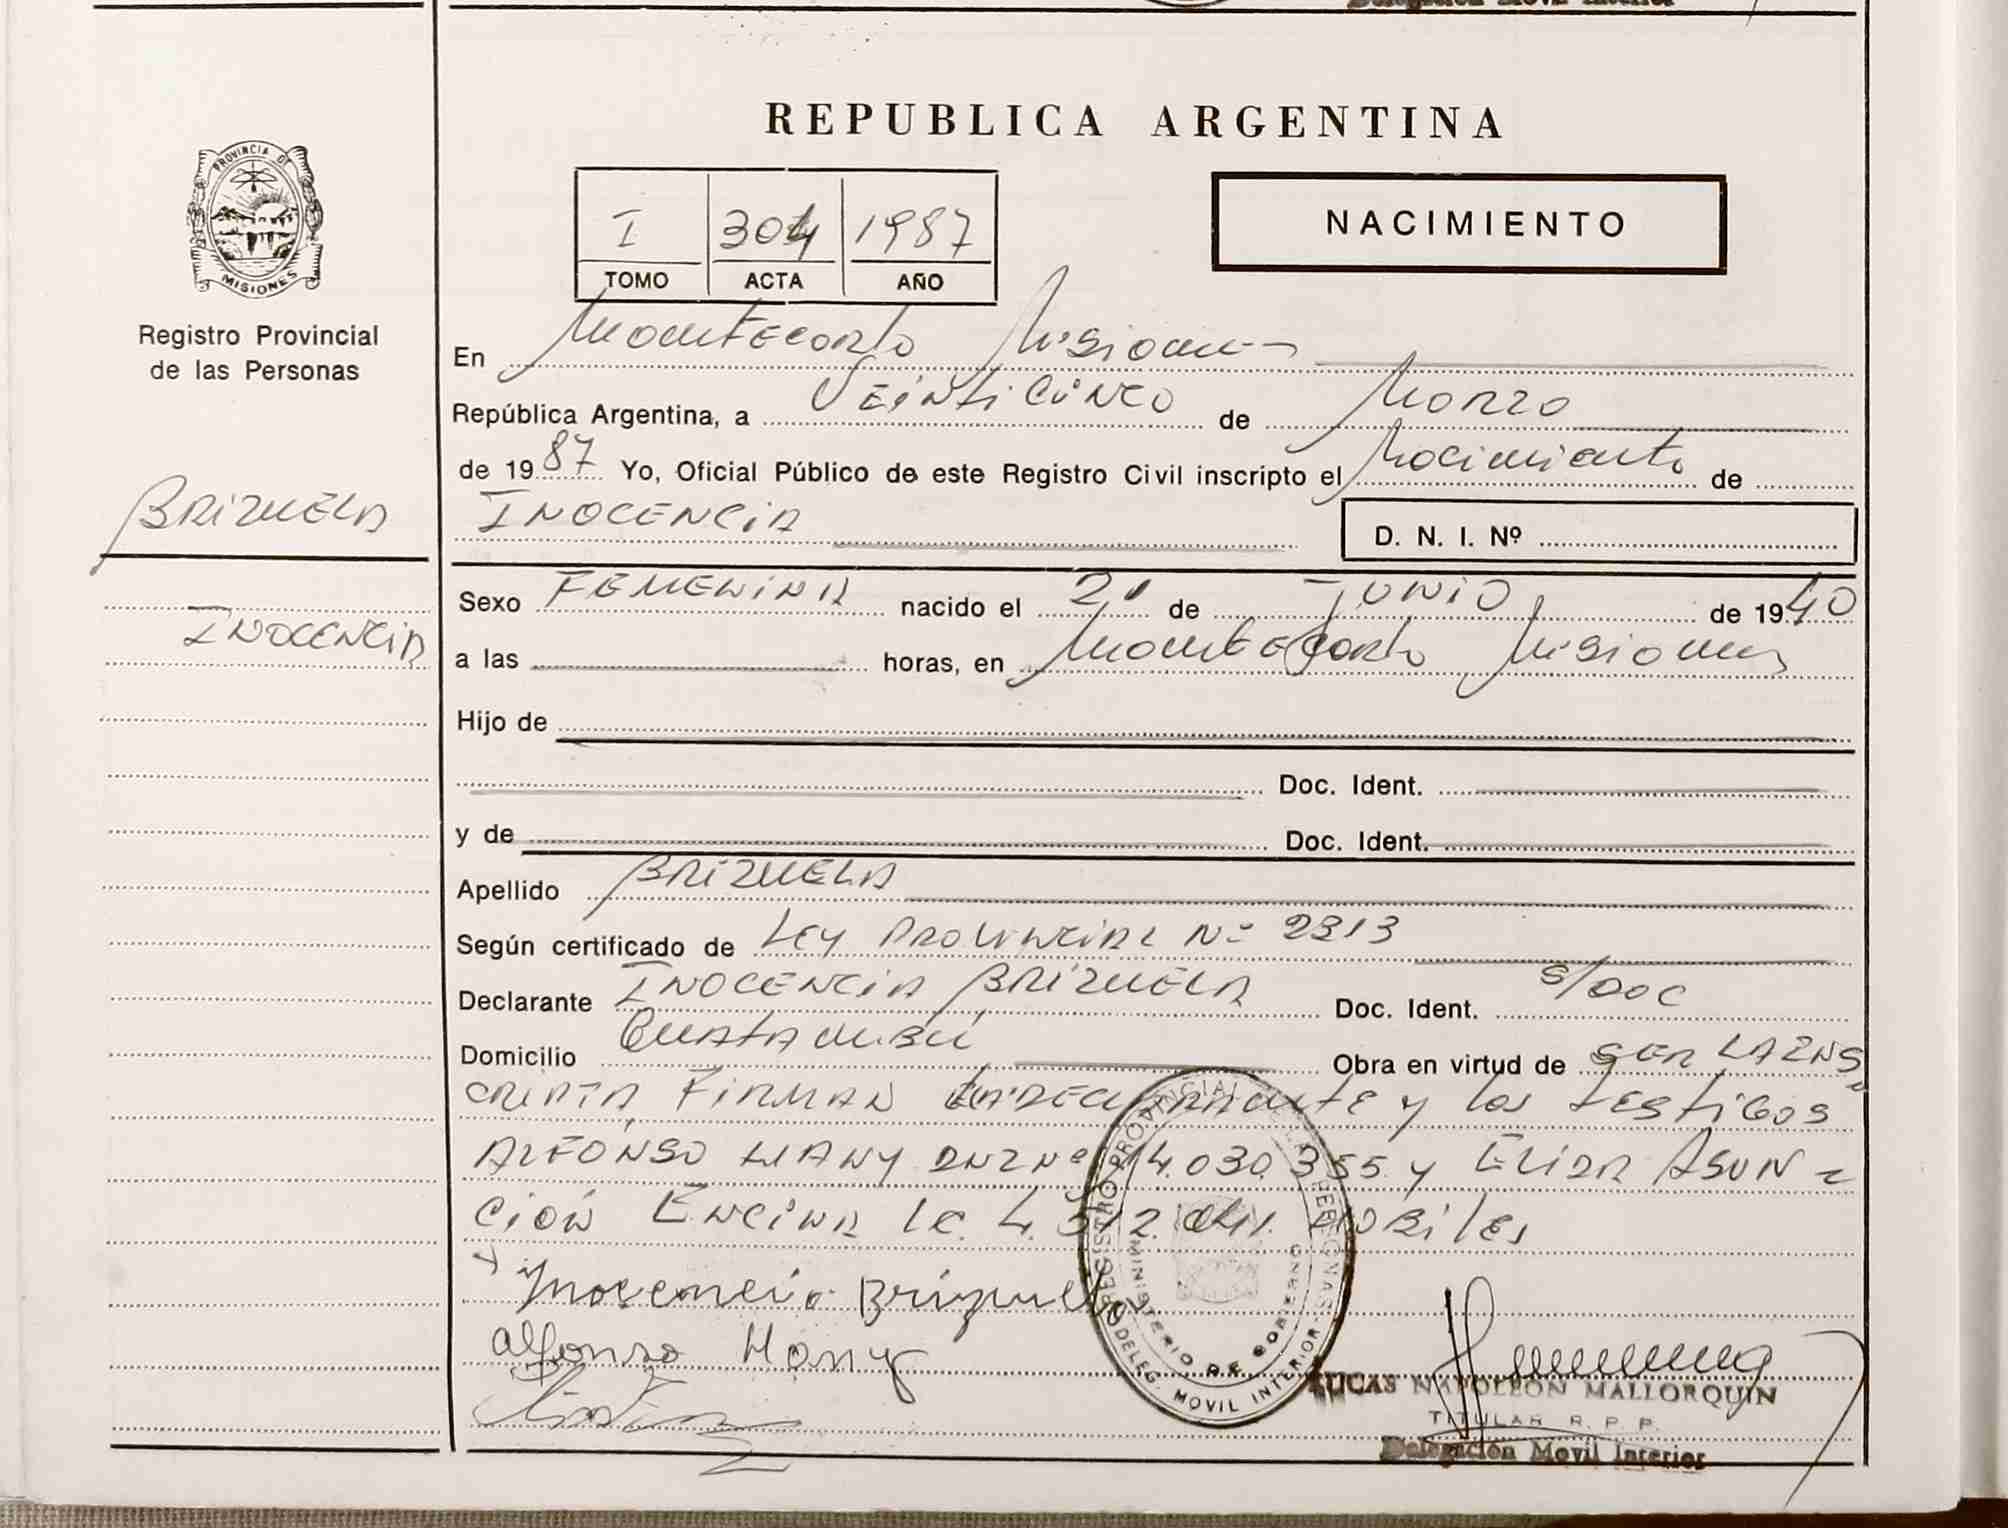 Delegación Movil Interior
REPUBLICA ARGENTINA
PROVINCIA DE
MISIONES
I 304 1987
TOMO ACTA AÑO
NACIMIENTO
Registro Provincial
de las Personas
En Montecarlo Misiones
República Argentina, a Veinticinco de Marzo
de 1987 Yo, Oficial Público de este Registro Civil inscripto el Nacimiento de
BRIZUELA
INOCENCIA
D. N. I. Nº
INOCENCIA
Sexo FEMENINA nacido el 2 de JUNIO de 1940
a las horas, en Montecarlo Misiones
Hijo de
Doc. Ident.
y de Doc. Ident.
Apellido BRIZUELA
Según certificado de LEY PROVINCIAL Nº 2313
Declarante INOCENCIA BRIZUELA Doc. Ident. S/DOC
Domicilio Guatambú Obra en virtud de SER LA INS
CRIPTA FIRMAN LA DECLARANTE y los testigos
ALFONSO HANY DNI Nº 14.030.355 y ELIDA ASUN-
CIÓN ENCINA LC 4.512.041. HABILES
Inocencia Brizuela
Alfonso Hany
REGISTRO PROVINCIAL DE LAS PERSONAS
MINISTERIO DE GOBIERNO
DELEG. MOVIL INTERIOR
LUCAS NAPOLEON MALLORQUIN
TITULAR R. P. P.
Delegación Movil Interior